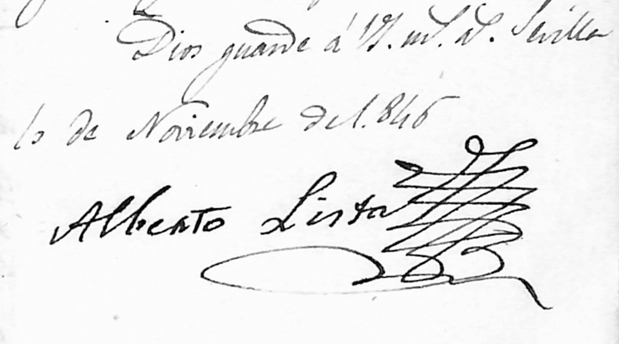 Dios guarde á V. m. a. Sevilla
10 de Noviembre de 1.846
Alberto Lista